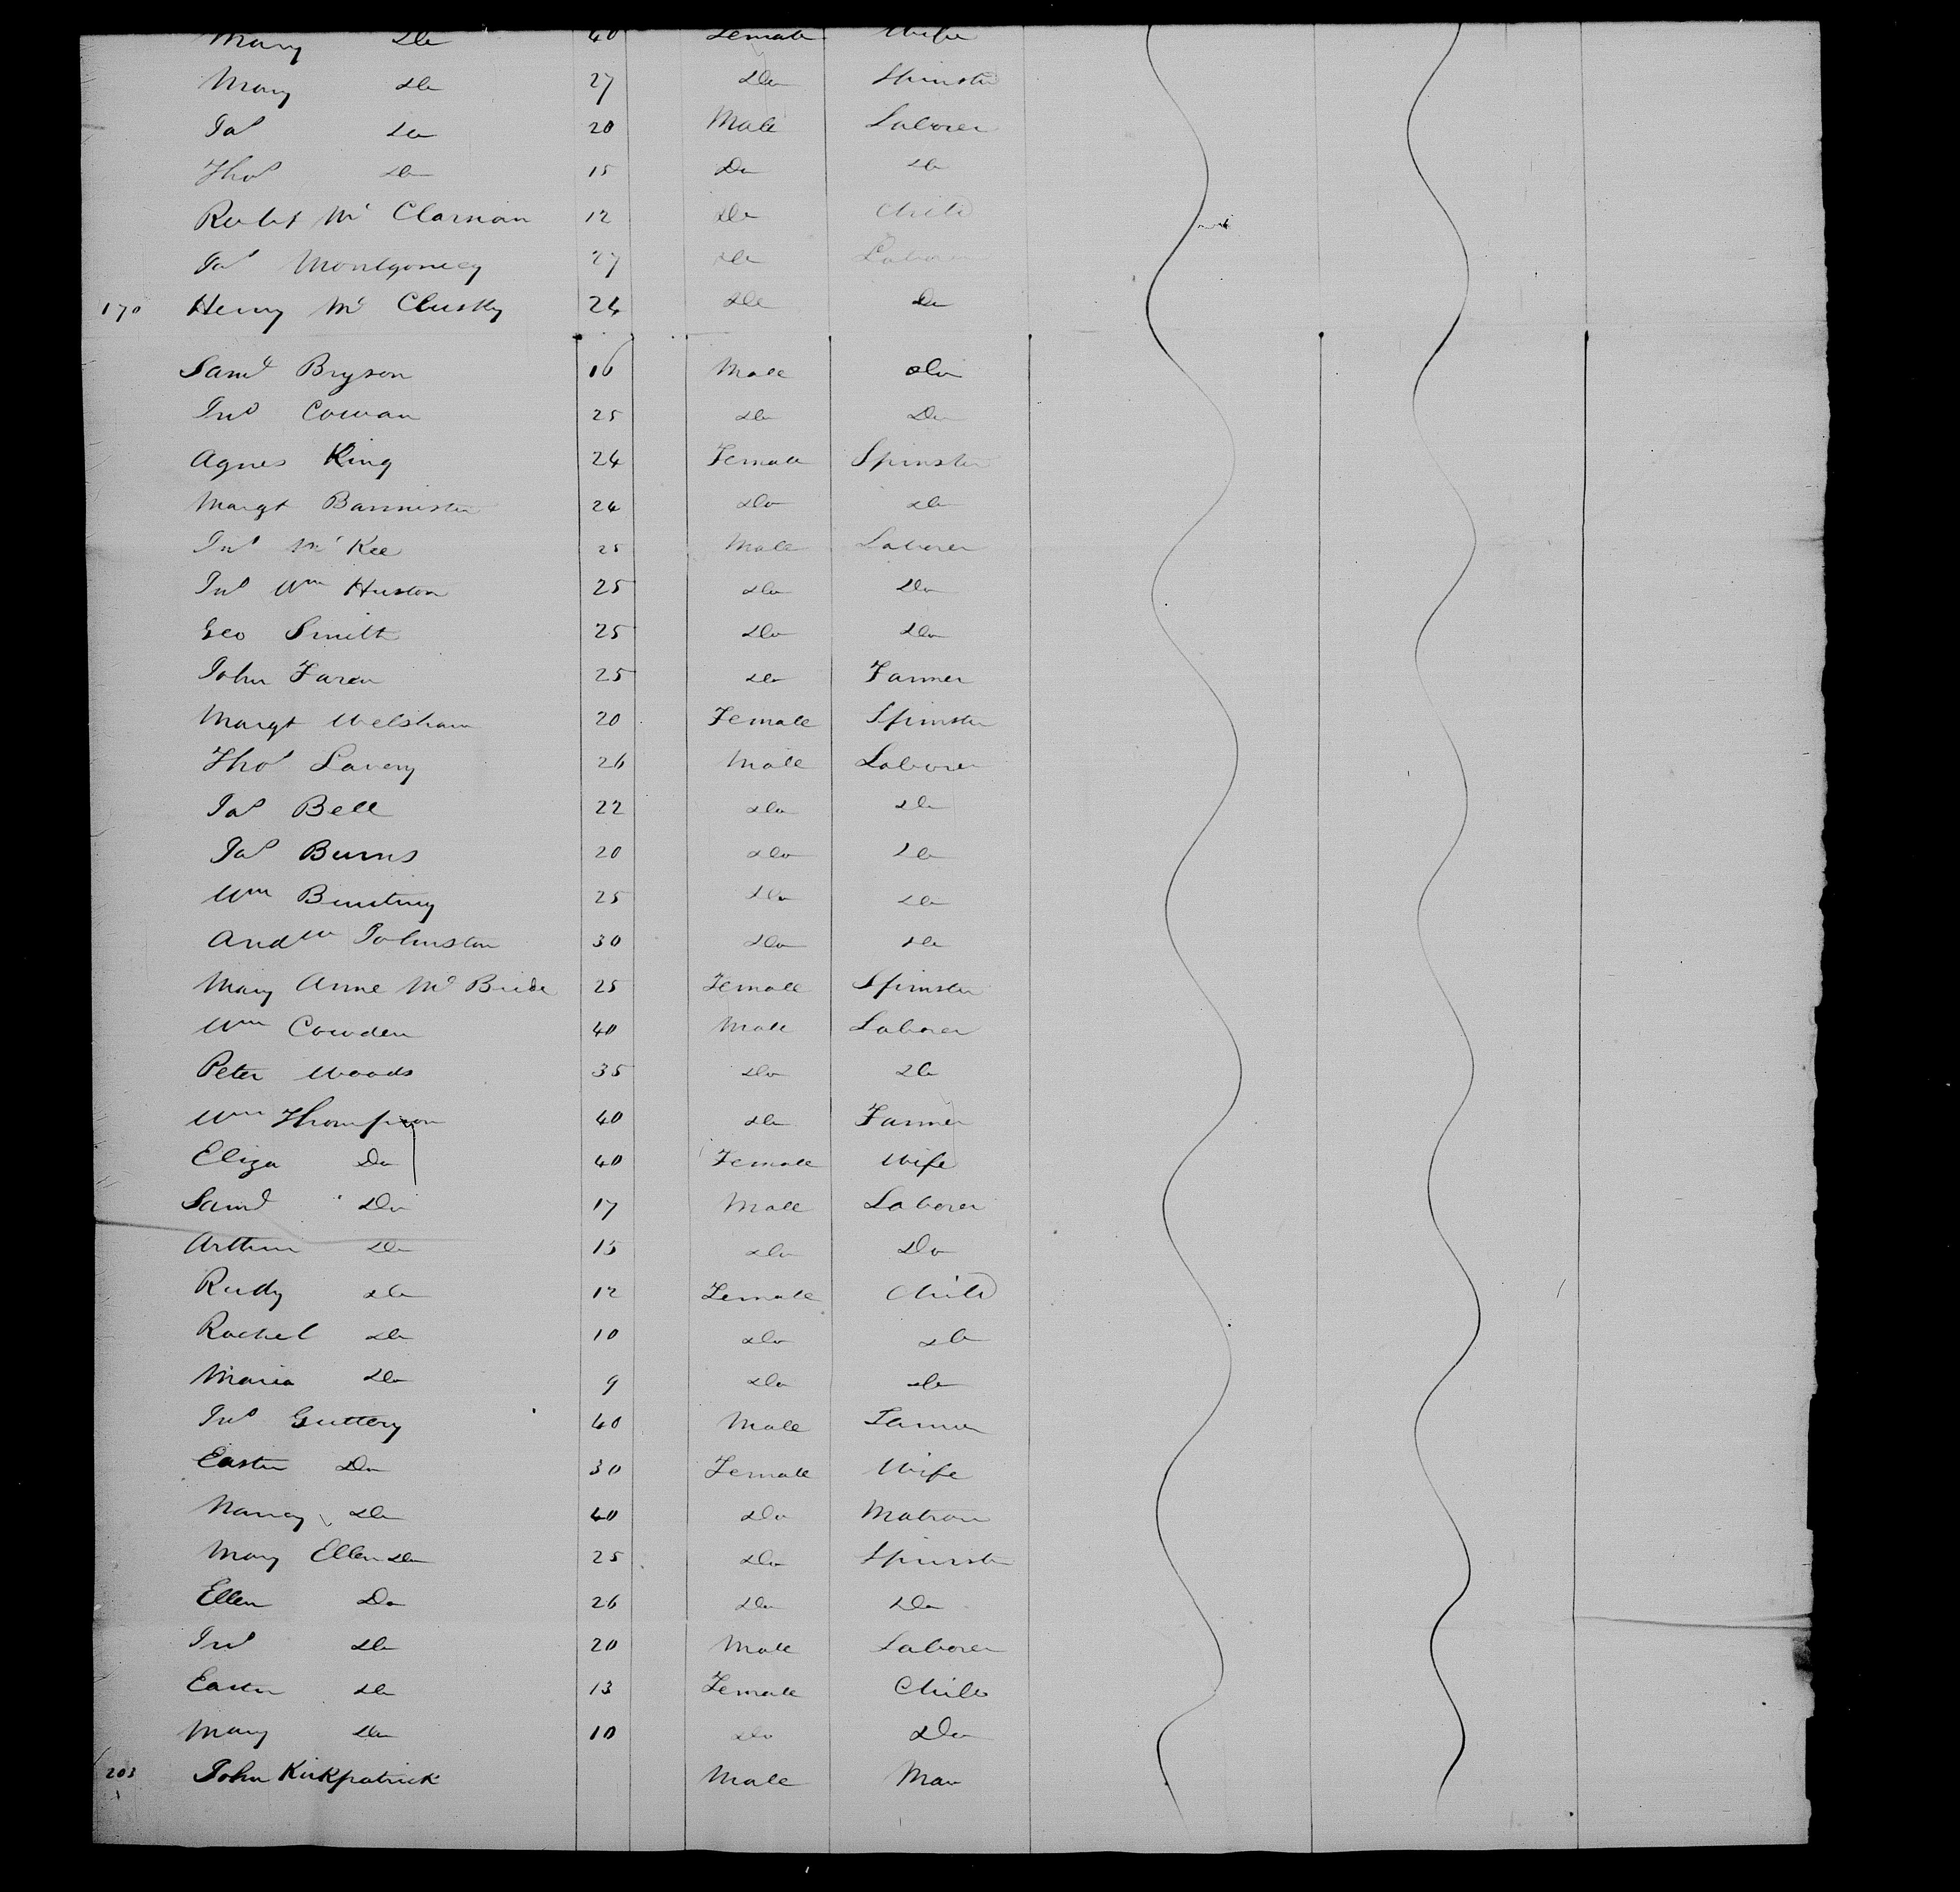 Mary Do 40 Female Wife
Mary Do 27 Do Spinster
Jas Do 20 Male Laborer
Thos Do 15 Do Do
Robt Mc Clarnan 12 Do Child
Jas Montgomery 27 Do Laborer
170 Henry Mc Clusky 24 Do Do
Saml Bryson 16 Male Do
Jno Cowan 25 Do Do
Agnes King 24 Female Spinster
Margt Bannister 24 Do Do
Jno Mc Kee 25 Male Laborer
Jno Wm Huston 25 Do Do
Geo Smith 25 Do Do
John Faren 25 Do Farmer
Margt Welsham 20 Female Spinster
Thos Lavery 26 Male Laborer
Jas Bell 22 Do Do
Jas Burns 20 Do Do
Wm 25 Do Do
Andw Johnston 30 Do Do
Mary Anne Mc Bride 25 Female Spinster
Wm Cowden 40 Male Laborer
Peter Woods 35 Do Do
Wm Thompson 40 Do Farmer
Eliza Do 40 Female Wife
Saml Do 17 Male Laborer
Arthur Do 15 Do Do
Rudy Do 12 Female Child
Rachel Do 10 Do Do
Maria Do 9 Do Do
Jno Guttery 40 Male Farmer
Easter Do 30 Female Wife
Nancy Do 40 Do Matron
Mary Ellen Do 25 Do Spinster
Ellen Do 26 Do Do
Jno Do 20 Male Laborer
Easter Do 13 Female Child
Mary Do 10 Do Do
203 John Kirkpatrick Male Man